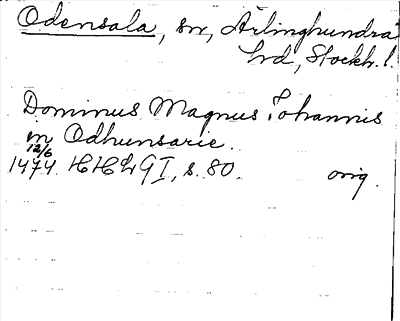 Odensala, sn, Ärlinghundra
hd, Stockh. l.
Dominus Magnus Johannis
in Odhunsarie.
12/6
1474. HHLGI, s. 80. orig.